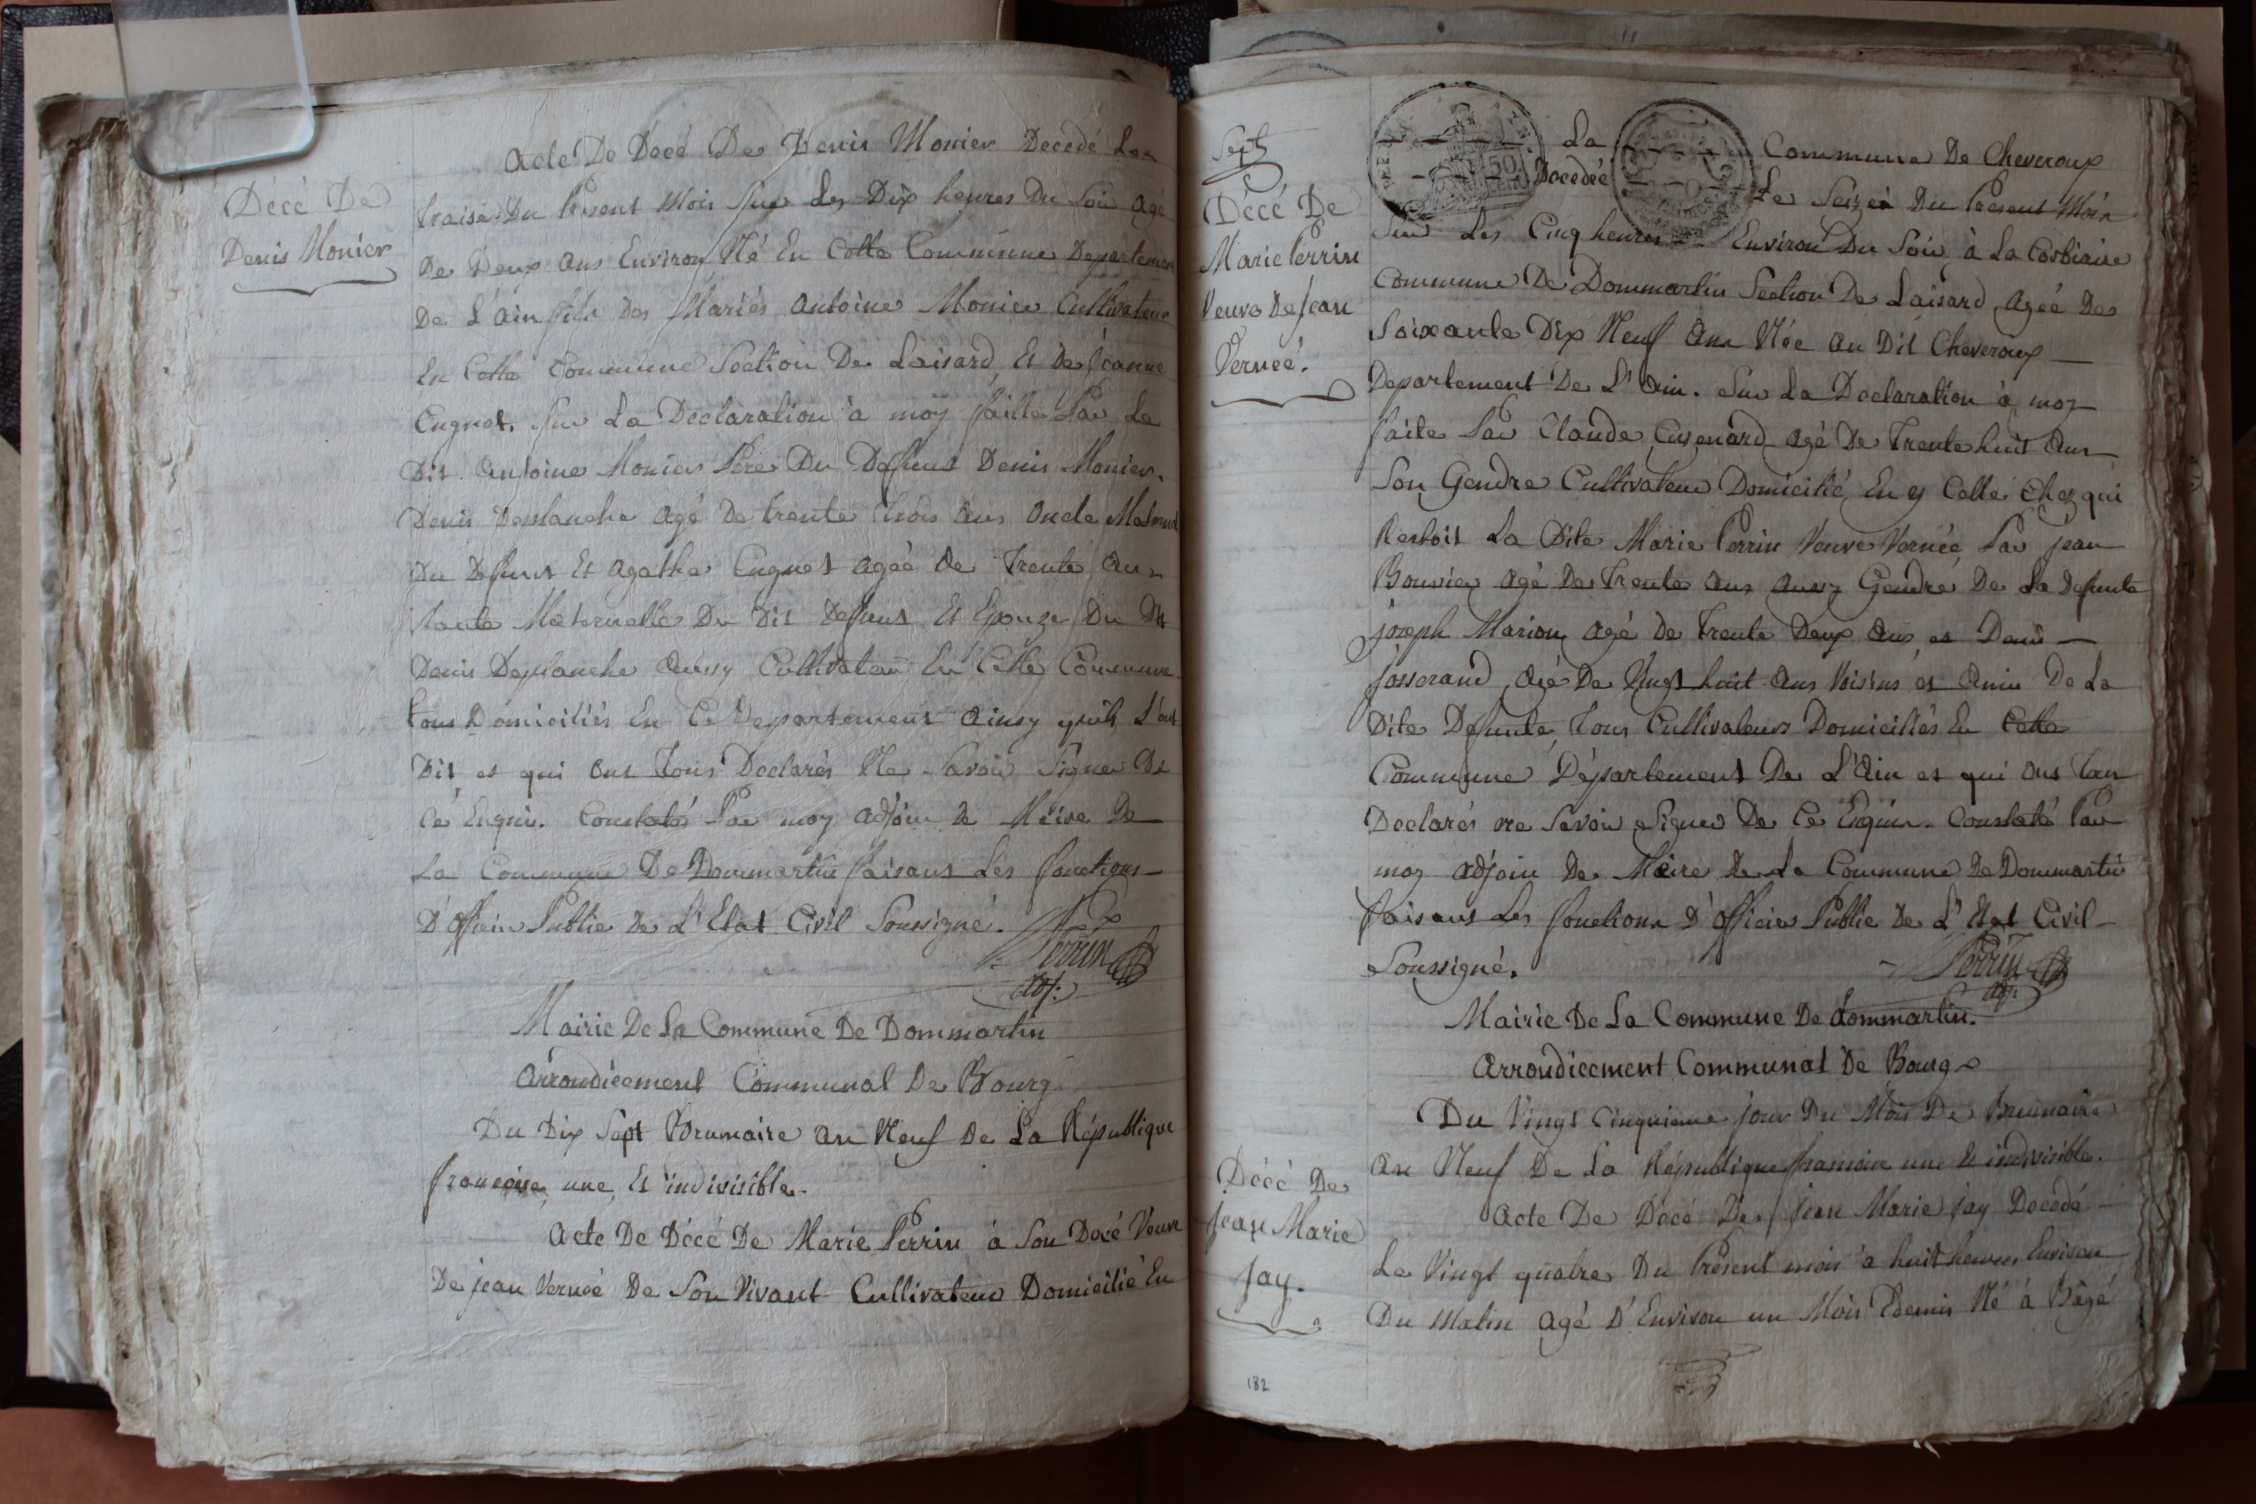 Acte De Décé De Denis Monier Decedé Le
Décé De
Denis Monier
traise Du Present Mois Sur Les Dix heures Du Soir agé
De Deux ans Environ Né En Cette Commune Departement
De L'Ain fils des Mariés Antoine Monier Cultivateur
En Cette Commune Section De Laisard, Et De Jeanne
Cugnet. Sur La Declaration à moy faitte Par Le
Dit Antoine Monier Pere Du Defunt Denis Monier.
Denis Desplanche agé De trente trois ans oncle Maternel
Du Defunt Et Agathe Cugnet agée De Trente ans
tante Maternelle Du Dit Defunt Et Epouze Du Dit
Denis Deplanche Aussy Cultivateur En Cette Commune
tous Domiciliés En Ce Departement ainsy qu'ils L'ont
Dit et qui ont tous Declarés Ne Savoir Signer De
Cé Enquis. Constaté Par moy adjoin De Maire De
La Commune De Dommartin faisant Les fonctions
D'officier Public De L'Etat Civil Soussigné.
Perrin
adj:
Mairie De La Commune De Dommartin
Arrondicement Communal De Bourg
Du Dix Sept Brumaire an Neuf De La République
francoise, une, Et indivisible.
Acte De Décé De Marie Perrin à Son Décé Veuve
De jean Vernée De Son Vivant Cultivateur Domicilié En
Sept
Décé De
Marie Perrin
Veuve De Jean
Vernée.
La Commune De Cheveroux
Decedeé Le Seize Du Present Mois
Sur Les Cinq heures Environ Du Soir à La Corbiaire
Commune De Dommartin Section De Laisard, ageé De
Soixante Dix Neuf Ans Née au Dit Cheveroux
Departement De L'Ain. Sur La Declaration à moy
faite Par Claude Cusenard agé De Trente huit Ans
Son Gendre Cultivateur Domicilié En y Celle Chez qui
Restoit La Dite Marie Perrin Veuve Vernée Par jean
Bouvier agé De Trente ans aussy Gendre De La Defunte
joseph Marion agé de Trente Deux Ans, et Denis
josserand, agé De Vingt huit Ans Voisins et Amis De La
Dite Defunte, Tous Cultivateurs Domiciliés En Cette
Commune Département De L'Ain et qui ont Tous
Declarés ne Savoir Signer De Ce Enquis. Constaté Par
moy adjoin De Maire De La Commune De Dommartin
faisant Les fonctions D'officier Public De L'Etat Civil
Soussigné.
Perrin
adj:
Mairie De La Commune De Dommartin.
Arrondicement Communal De Bourg
Du Vingt Cinquieme jour Du Mois De Brumaire
An Neuf De La République francoise une Et indivisible.
Décé De
Jean Marie
Jay.
Acte De Décé De Jean Marie Jay Decédé
Le Vingt quatre Du Présent mois à huit heures Environ
Du Matin agé D'Environ un Mois Edemis Né à Bâgé
182